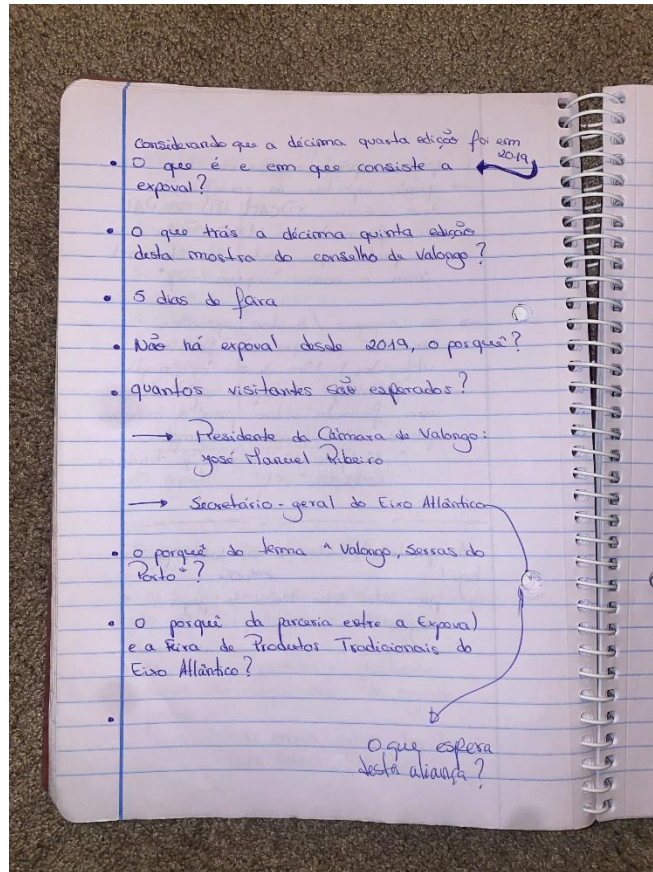 Considerando que a décima quarta edição foi em
2019
• O que é e em que consiste a
expoval?
• O que trás a décima quinta edição
desta mostra do conselho de Valongo?
• 5 dias de feira
• Não há expoval desde 2019, o porquê?
• quantos visitantes são esperados?
→ Presidente da Câmara de Valongo:
José Manuel Ribeiro
→ Secretário-geral do Eixo Atlântico
• O porquê do tema "Valongo, Serras do
Porto"?
• O porquê da parceria entre a Expoval
e a Feira de Produtos Tradicionais do
Eixo Atlântico?
•
O que espera
desta aliança?